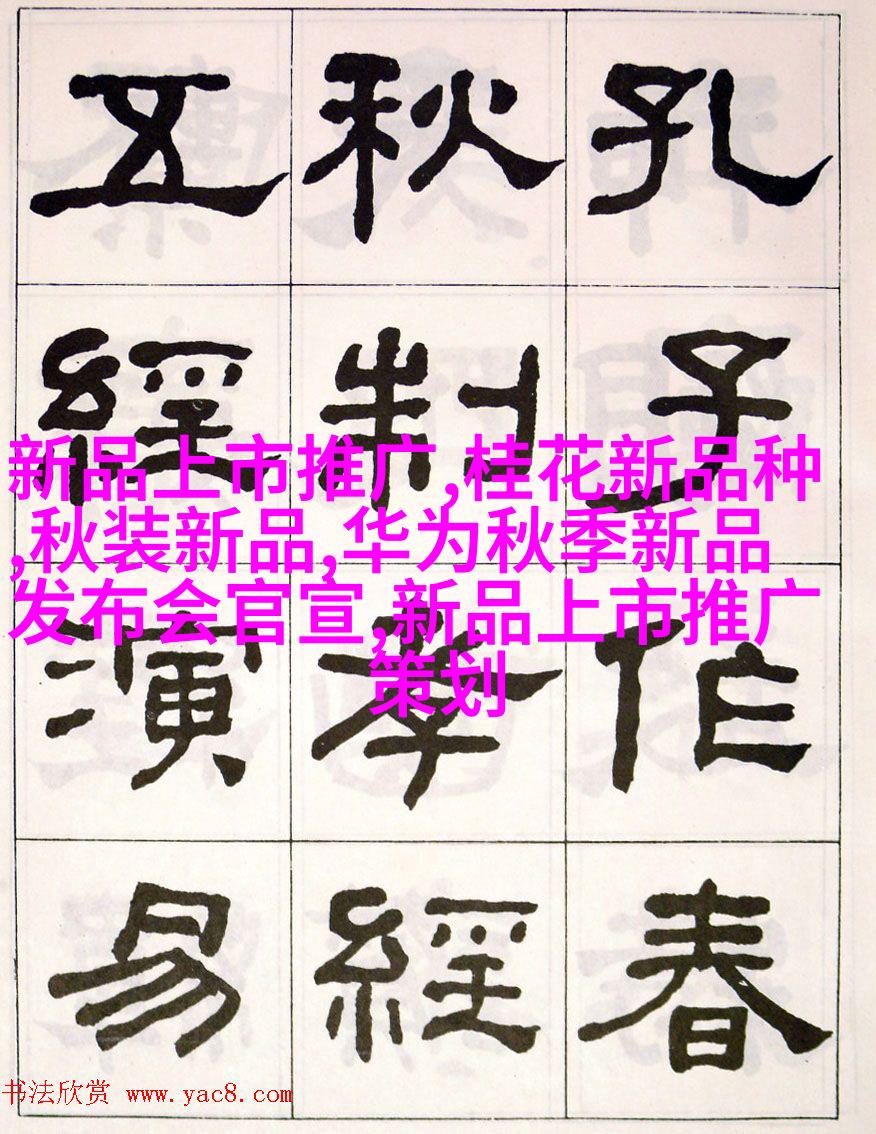 孔子作春
秋制孝經
五經演易
新品上市推广,桂花新品种
,秋装新品,华为秋季新品
发布会官宣,新品上市推广
策划
书法欣赏 www.yac8.com